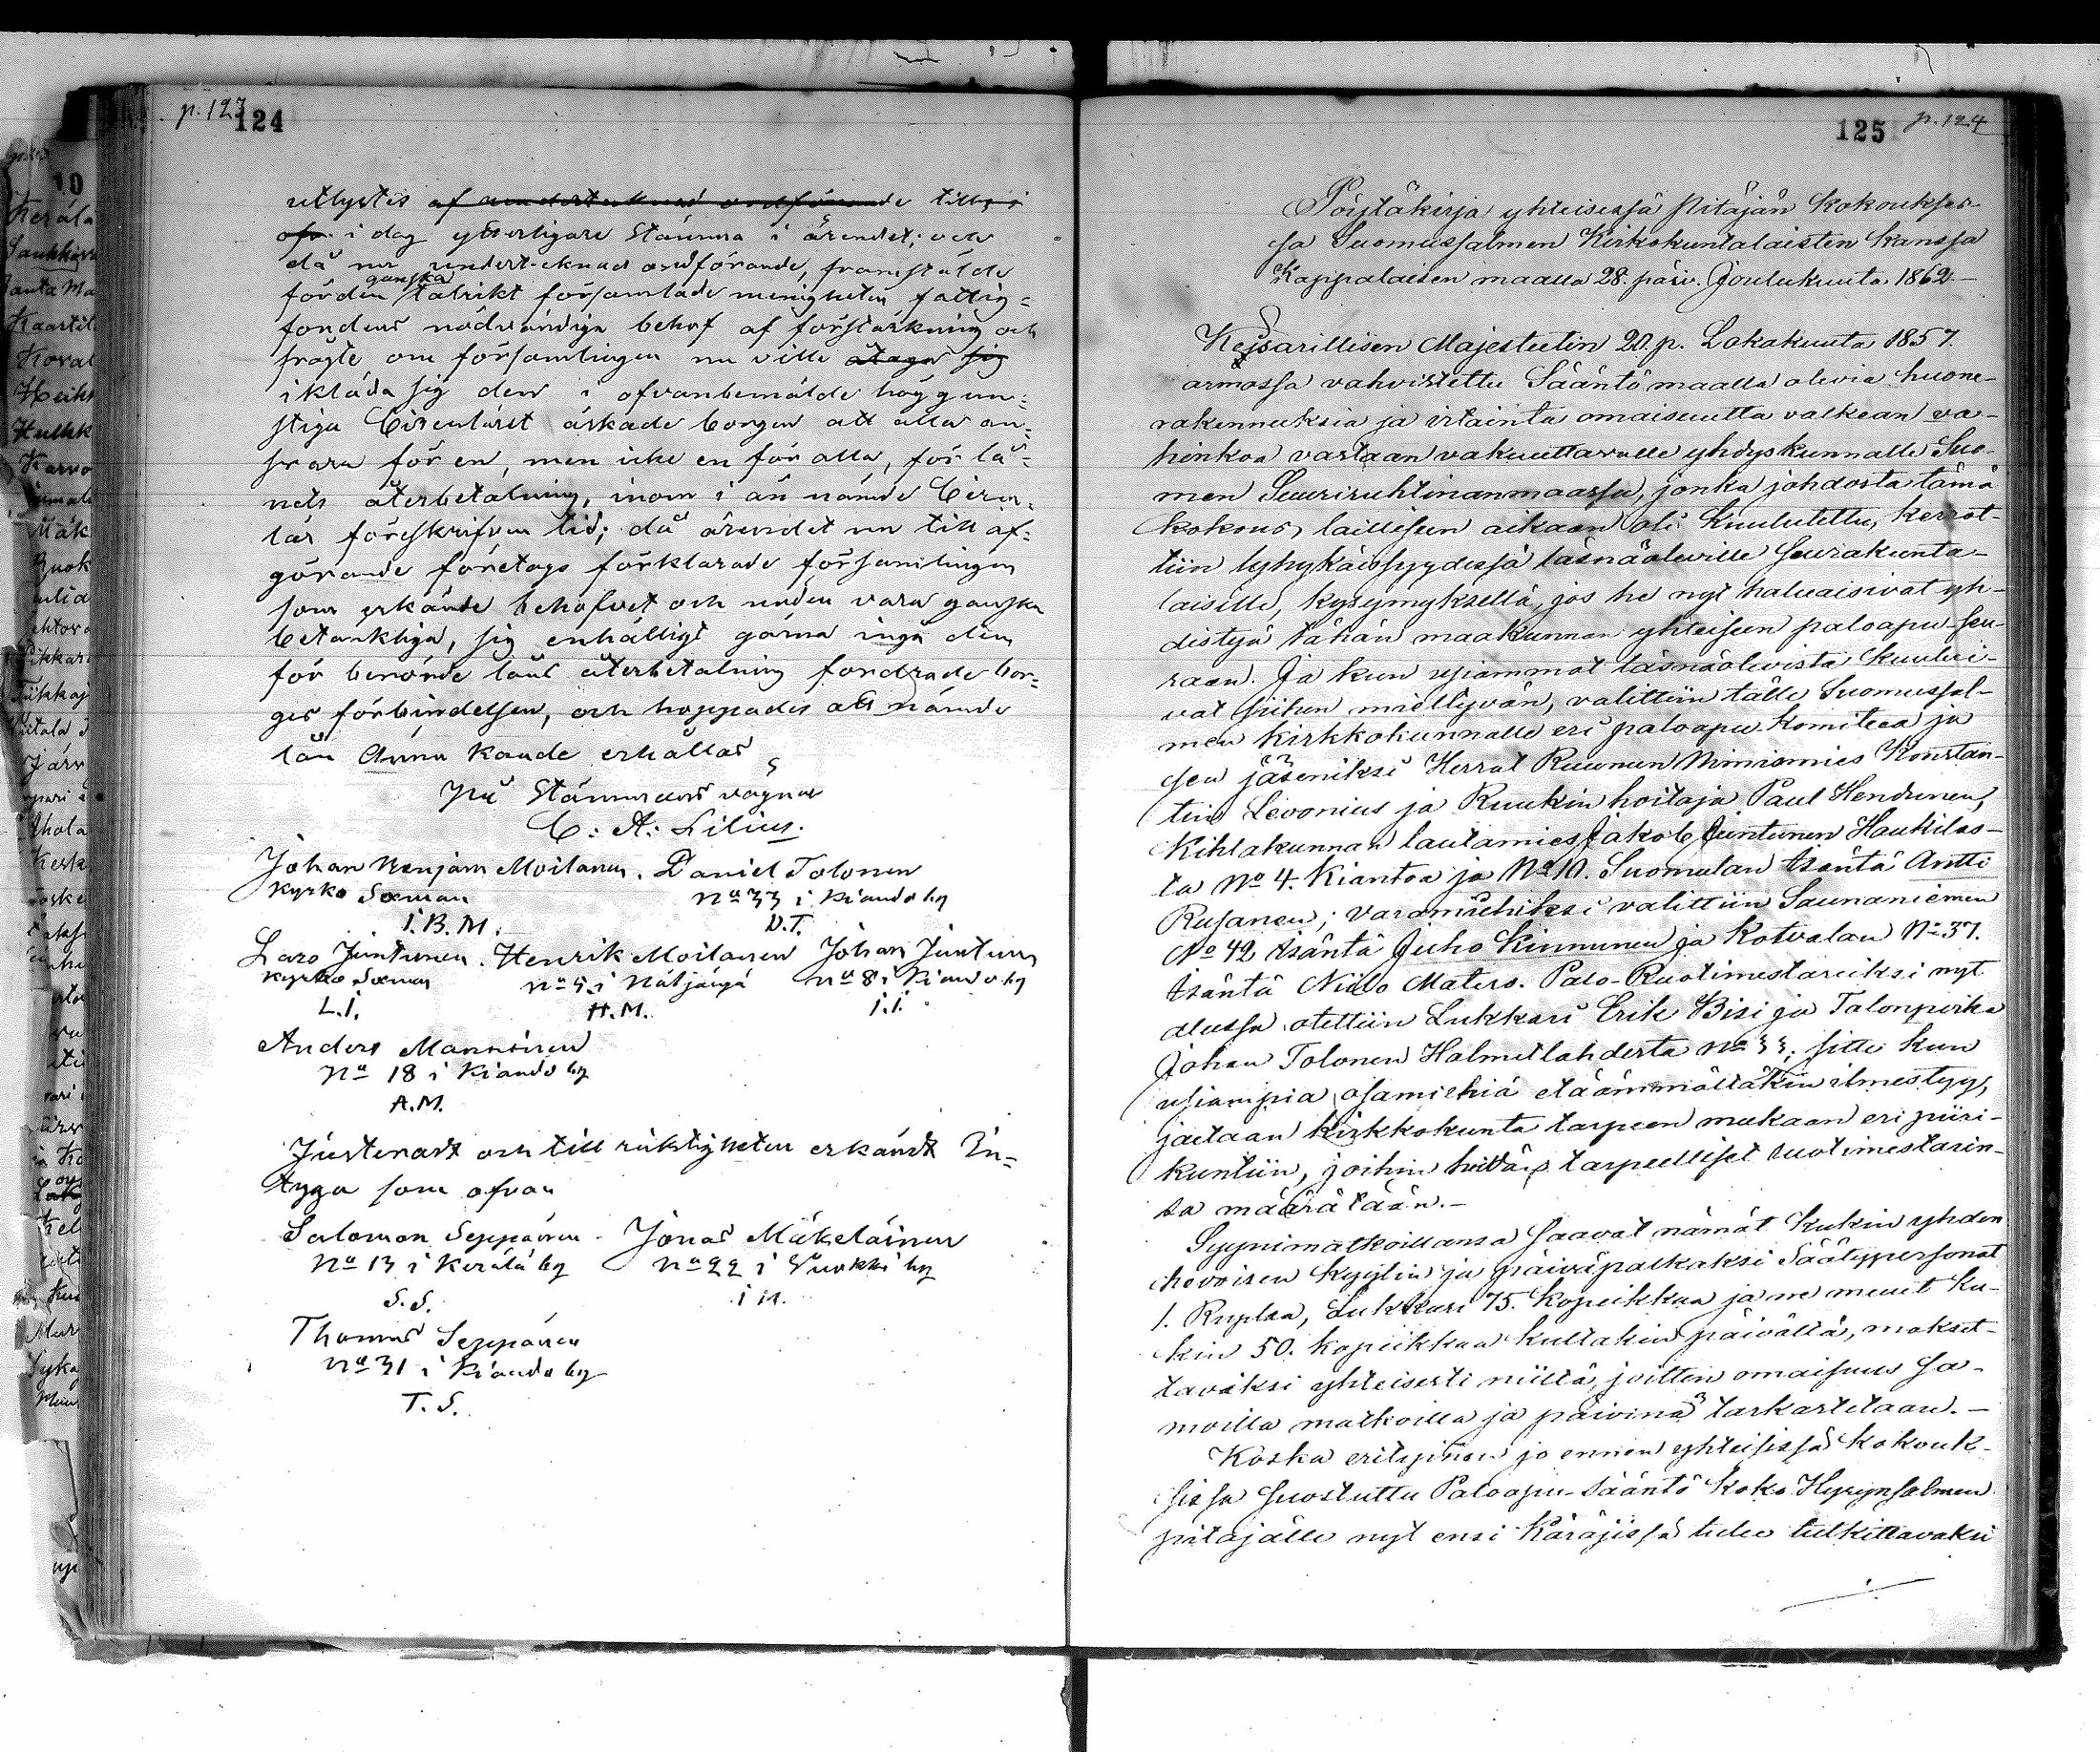 p. 123
124
utlystes af undertecknad ordförande till
i dag ytterligare Stämma i ärendet; och
då nu undertecknad ordförande, framstälde
för den ganska talrikt församlade menigheten fattig=
fondens nödvändiga behof af förstärkning och
frågte om församlingen nu ville åtaga sig
ikläda sig den i ofvanbemälde höggun=
stiga Circuläret äskade borgen att alla an=
svara för en, men icke en för alla, för lå=
nets återbetalning, inom i än nämde Circu=
lär föreskrifven tid; då ärendet nu till af=
görande företogs förklarade församlingen
som erkände behofvet och nöden vara ganska
betänkliga, sig enhälligt gärna ingå den
för berörde låns återbetalning fordrade bor=
ges förbindelsen, och hoppades att nämde
lån ännu kunde erhållas
På Stämmans vägnar
C: A: Lilius.
Johan Benjam Moilanen. Daniel Tolonen
Kyrko Sexman No 33 i Kiando by
I. B. M. D. T.
Lars Juntunen. Henrik Moilanen Johan Juntunen
Kyrko Sexman No 5 i Näljängä No 8 i Kiando by
L. I. H. M. I. I.
Anders Manninen
No 18 i Kiando by
A. M.
Justeradt och till riktigheten erkändt In=
tyga som ofvan
Salomon Seppänen Jonas Mäkeläinen
No 13 i Kerälä by No 22 i Wuokki by
S. S. I M.
Thomas Seppänen
No 31 i Kiando by
T. S.
125
p. 124
Pöytäkirja yhteisessä Pitäjän Kokoukses-
sa Suomussalmen Kirkokuntalaisten kanssa
Kappalaisen maalla 28. päiv. Joulukuuta 1862.—
Keisarillisen Majesteetin 20. p. Lokakuuta 1857.
armossa vahvistettu Sääntö maalla olevia huone-
rakennuksia ja irtainta omaisuutta valkean va-
hinkoa vastaan vakuuttavalle yhdyskunnalle Suo-
men Suuriruhtinanmaassa, jonka johdosta tämä
kokous, laillisen aikaan oli kuulutettu, kerrot-
tiin lyhykäisyydessä läsnäoleville seurakunta-
laisille, kysymyksellä, jos he nyt haluaisivat yh-
distyä tähän maakunnan yhteiseen paloapu-seu-
raan. Ja kun usiammat läsnäolevista kuului-
vat siihen mieltyvän, valittiin tälle Suomussal-
men kirkkokunnalle eri paloapu-komiteea ja
sen jäseniksi Herrat Ruunun Nimismies Konstan-
tin Levonius ja Ruukin hoitaja Paul Hendunen,
Kihlakunnan lautamies Jakob Juntunen Haukilas-
ta No 4. Kiantoa ja No 10. Suomulan Isäntä Antti
Rusanen; varamiehiksi valittiin Saunaniemen
No 42 Isäntä Juho Kinnunen ja Kotvalan No 37.
Isäntä Niilo Maters. Palo-Ruotimestareiksi nyt
alussa otettiin Lukkari Erik Bisi ja Talonpoika
Johan Tolonen Halmetlahdesta No 33; sitte kun
usiampia osamiehiä etäämmältäkin ilmestyy,
jaetaan Kirkkokunta tarpeen mukaan eri piiri-
kuntiin, joihin tarpeelliset ruotimestarin-
sa määrätään.—
Syynimatkoillansa saavat nämät kukin yhden
hevoisen kyytin ja päiväpalkaksi Säätypersonat
1. Ruplaa, Lukkari 75. kopeikkaa ja ne muut ku-
kin 50. kopeikkaa kultakin päivältä, makset-
tavaksi yhteisesti niiltä, joitten omaisuus sa-
moilla matkoilla ja päivinä tarkastetaan.—
Koska erityinen jo ennen yhteisissä kokouk-
sissa suostuttu Paloapu-Sääntö koko Hyrynsalmen
pitäjälle nyt ensi Käräjissä tulee tutkittavaksi